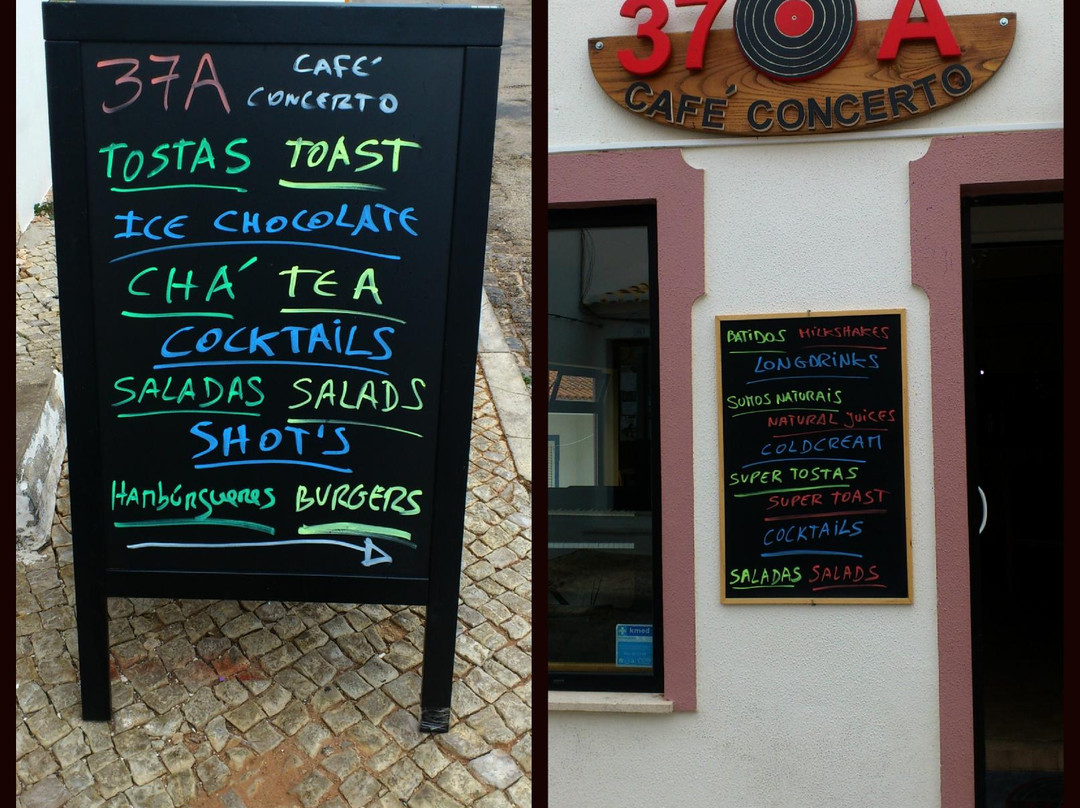 37A CAFÉ
CONCERTO
TOSTAS TOAST
ICE CHOCOLATE
CHÁ TEA
COCKTAILS
SALADAS SALADS
SHOT'S
HAMBÚRGUERES BURGERS
37 A
CAFÉ CONCERTO
BATIDOS MILKSHAKES
LONGDRINKS
SUMOS NATURAIS
NATURAL JUICES
COLDCREAM
SUPER TOSTAS
SUPER TOAST
COCKTAILS
SALADAS SALADS
kmed